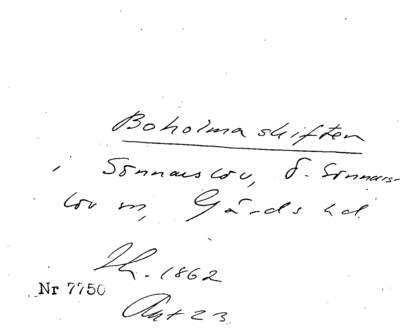 Boholmaskiften
i Sönnarslöv, Ö. Sönnars-
löv sn, Gärds hd.
Lk. 1862
Nr 7750
Akt 23